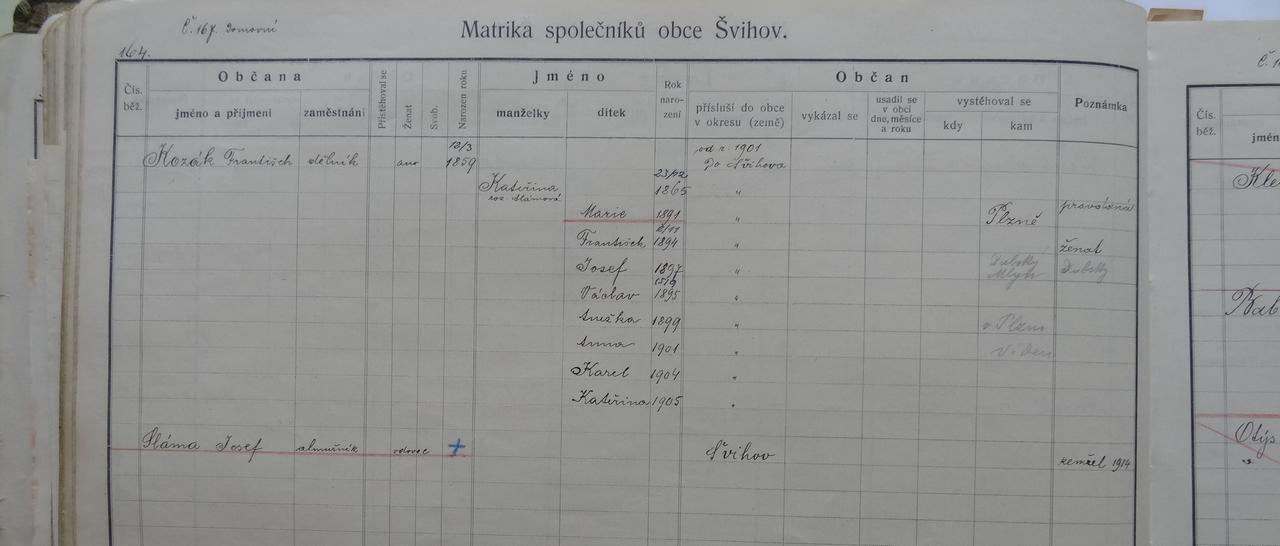 Č. 167. Domovní
Matrika společníků obce Švihov.
164.
Čís. běž.
Občana
jméno a přijmení
zaměstnání
Přistěhoval se
Ženat
Svob.
Narozen roku
Jméno
manželky
dítek
Rok naro- zení
Občan
přísluší do obce v okresu (země)
vykázal se
usadil se v obci dne, měsíce a roku
vystěhoval se
kdy
kam
Poznámka
Kozák František dělník ano 12/3 1859 od r. 1901 Do Švihova
Kateřina roz. Slámová 23/12 1865 "
Marie 1891 " Plzně provdaná
František 2/11 1894 " ženat
Josef 1897 " Dubsky Mlyn Dubsky
Václav 15/9 1895 "
Anežka 1899 " v Plzni
Anna 1901 " Viden
Karel 1904 "
Kateřina 1905 "
Sláma Josef almužník vdovec + Švihov zemřel 1914
Čís. běž.
jmén
Kle
Bab
Otýs